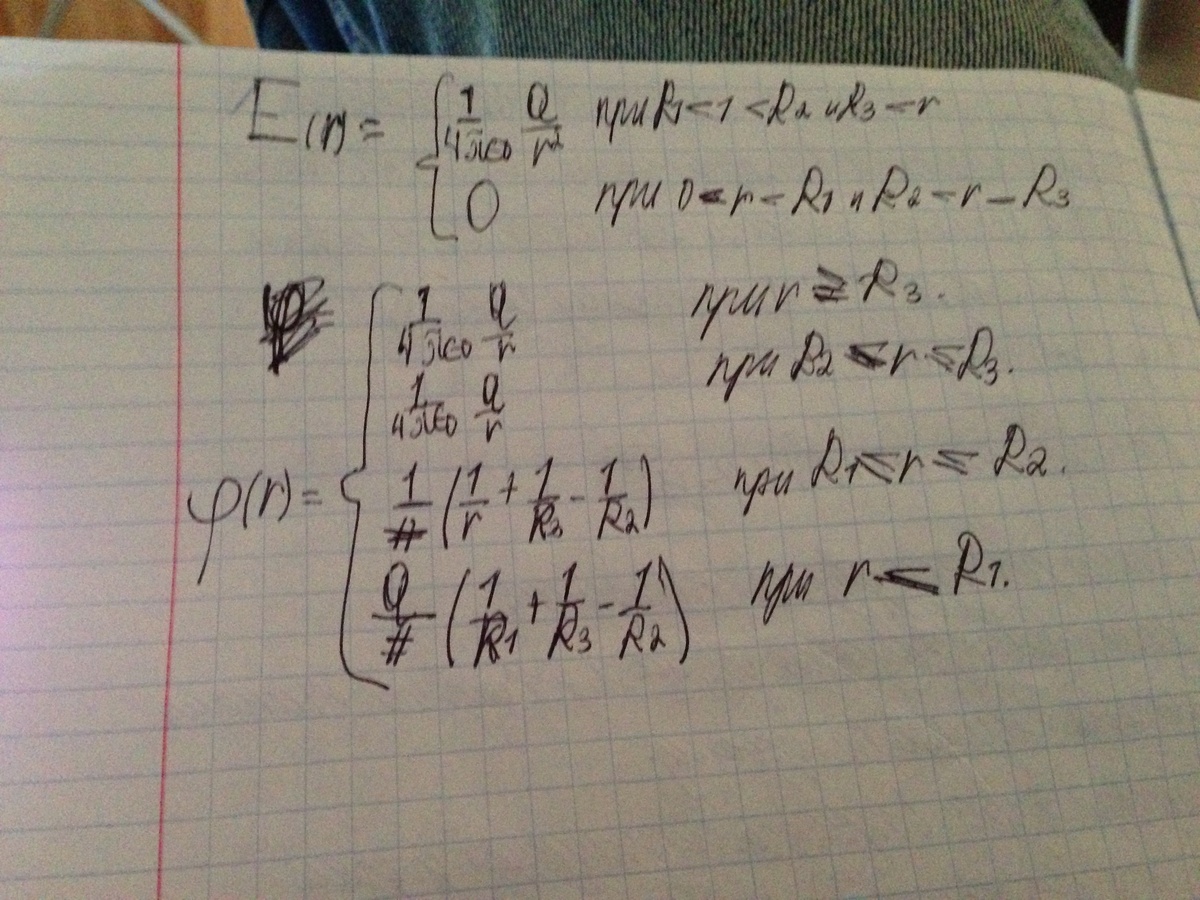 E(r) = { 1/4πε0 Q/r² при R1 < 1 < R2 и R3 < r
0 при 0 < r < R1 и R2 < r – R3
1/4πε0 Q/r при r ≥ R3.
1/4πε0 Q/r при R2 ≤ r ≤ R3.
φ(r) = { 1/# (1/r + 1/R3 - 1/R2) при R1 ≤ r ≤ R2.
Q/# (1/R1 + 1/R3 - 1/R2) при r ≤ R1.